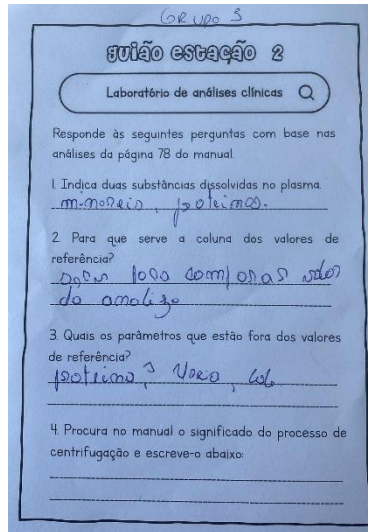 GRUPO 3
guião estação 2
Laboratório de análises clínicas
Responde às seguintes perguntas com base nas
análises da página 78 do manual.
1. Indica duas substâncias dissolvidas no plasma.
minerais, proteínas.
2. Para que serve a coluna dos valores de
referência?
para comparar
da
3. Quais os parâmetros que estão fora dos valores
de referência?
proteína
4. Procura no manual o significado do processo de
centrifugação e escreve-o abaixo: